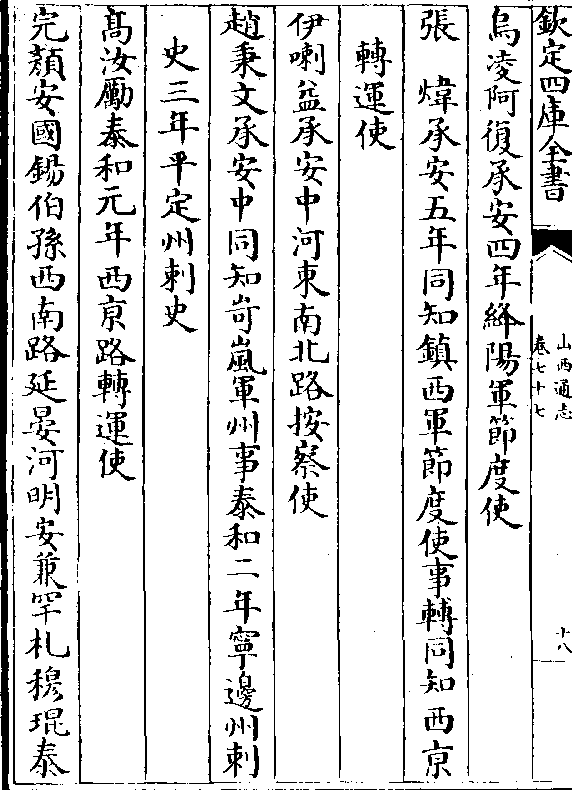 欽定四庫全書
山西通志
卷七十七
十八
烏凌阿復承安四年絳陽軍節度使
張　煒承安五年同知鎮西軍節度使事轉同知西京
轉運使
伊喇益承安中河東南北路按察使
趙秉文承安中同知岢嵐軍州事泰和二年寧邊州刺
史三年平定州刺史
髙汝勵泰和元年西京路轉運使
完顔安國錫伯孫西南路延晏河明安兼罕札穆琨泰